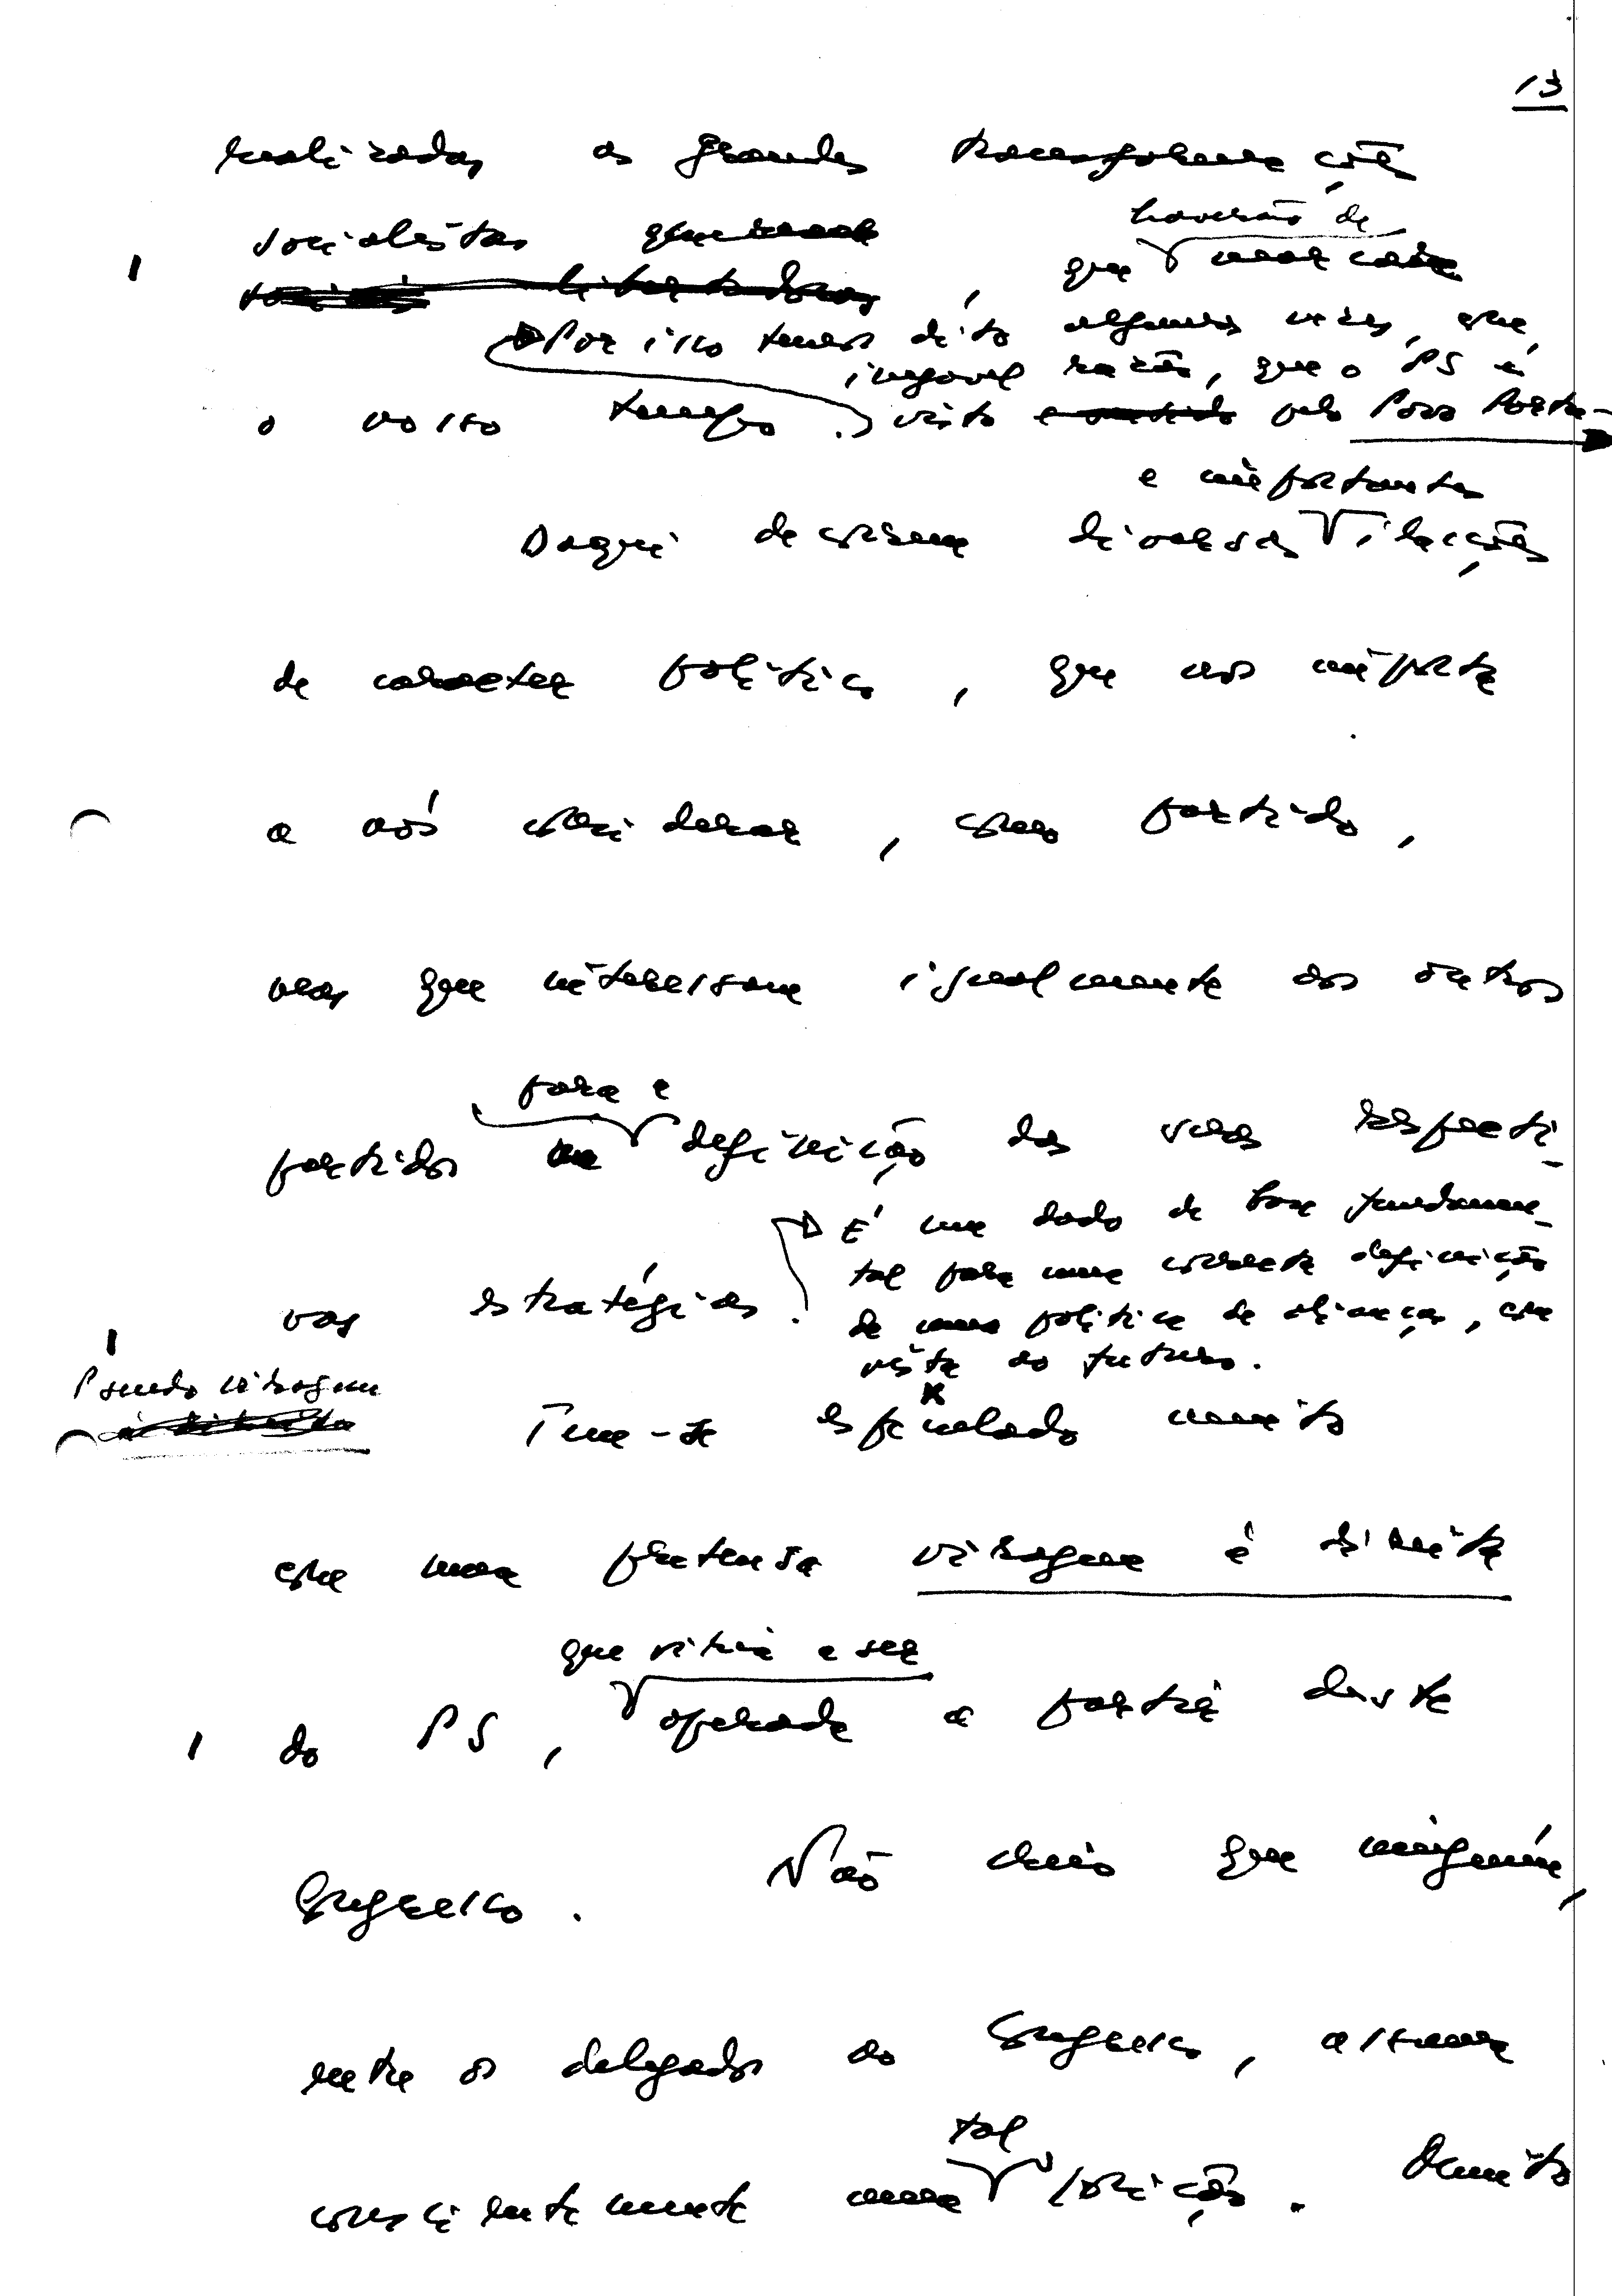 13
realizadas as grandes transformações
socialistas que
haverão de
que marcar
o nosso tempo.
Por isso temos dito algumas vezes, com
inegável razão, que o PS é
visto pelo Povo Portu-
e importantes
Daqui decorrem diversas ilações
de caracter político, que nos importa
a nós considerar, como partido,
mas que interessam igualmente aos outros
para a
partidos definição das suas respecti-
vas estratégias.
É um dado de base fundamen-
tal para uma correcta definição
de uma política de alianças, com
vista ao futuro.
Pseudo viragem
Tem-se especulado muito
com uma pretensa viragem à direita
que viria a ser
do PS, operada a partir deste
Congresso. Não creio que ninguém,
entre os delegados ao Congresso, assuma
tal
conscientemente uma posição. Quanto